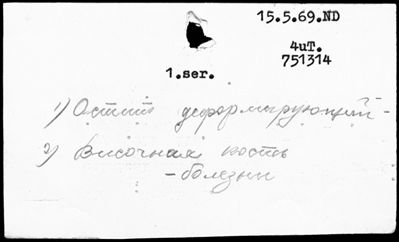 15.5.69.ND
4uT.
751314
1.ser.
1) Остит деформирующий -
2) Височная кость
- болезни